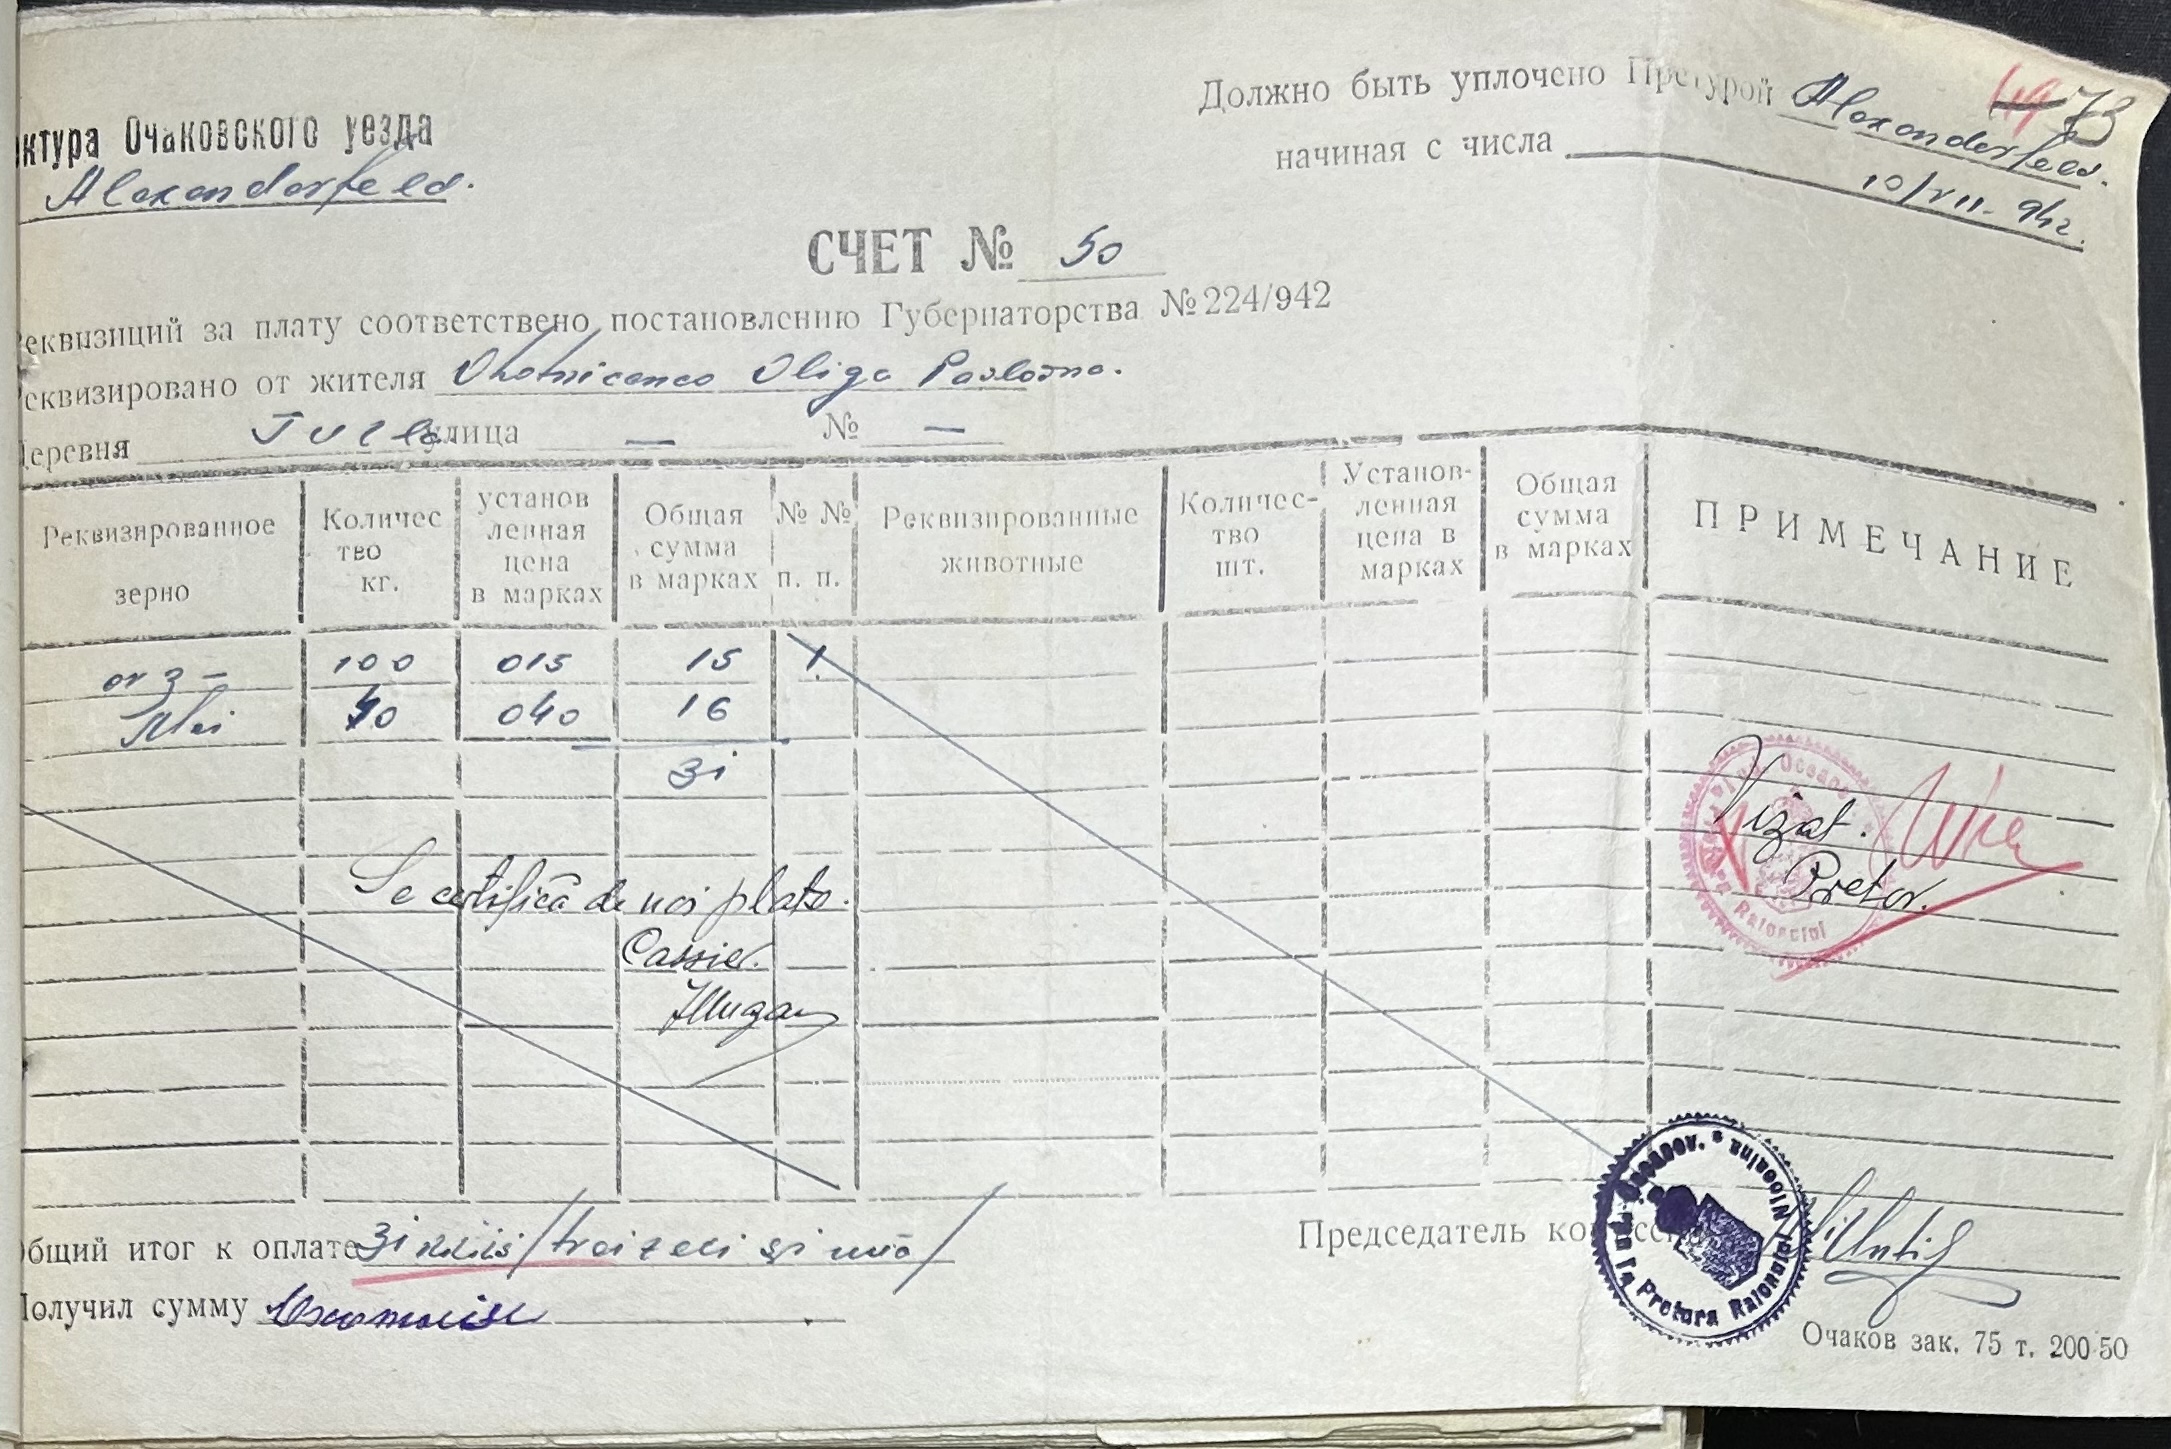 ктура Очаковского уезда
Alexanderfeld.
Должно быть уплочено Претурой Alexanderfeld.
49 73
начиная с числа 10/VII. 942.
СЧЕТ № 50
Реквизиций за плату соответствено постановлению Губернаторства № 224/942
Реквизировано от жителя Ohotnicenco Oliga Pavlovna.
Деревня улица — № —
Реквизированное зерно Количество кг. установленная цена в марках Общая сумма в марках №№ п. п. Реквизированные животные Количество шт. Установленная цена в марках Общая сумма в марках ПРИМЕЧАНИЕ
orz – 100 015 15 1.
40 040 16
31
Vizat.
Pretor.
Se certifică de noi plata.
Cassier.
Общий итог к оплате 31 /treizeci și una/
Председатель
Получил сумму
Pretura Raională
Очаков зак. 75 т. 200-50